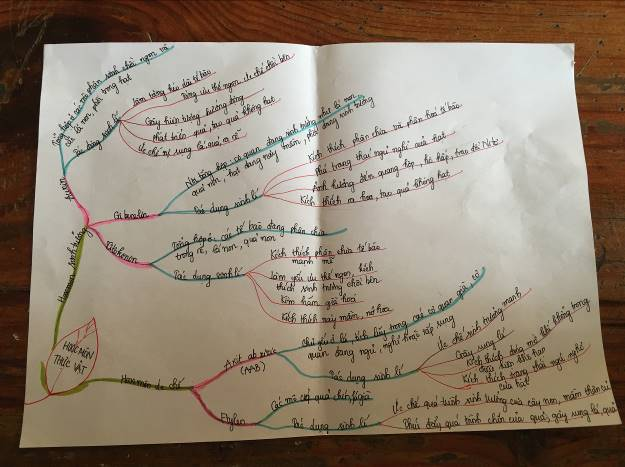 HOOCMÔN
THỰC VẬT
Hoocmon sinh trưởng
Auxin
Tổng hợp ở các mô phân sinh chồi ngọn và
lá non, phôi trong hạt
Tác dụng sinh lí
Làm tăng kéo dài tế bào
Tăng ưu thế ngọn, ức chế chồi bên
Gây hiện tượng hướng động
Phát triển quả, tạo quả không hạt
Ức chế sự rụng lá, quả, ra rễ
Giberelin
Nơi tổng hợp: cơ quan đang sinh trưởng như lá non
quả non, hạt đang nảy mầm, phôi đang sinh trưởng
Tác dụng sinh lí
Kích thích phân chia và phân hoá tế bào
Phá trạng thái ngủ nghỉ của hạt
Ảnh hưởng đến quang hợp, hô hấp, trao đổi Nitơ
Kích thích ra hoa, tạo quả không hạt
Xitokinin
Tổng hợp ở các tế bào đang phân chia
trong rễ, lá non, quả non
Tác dụng sinh lí
Kích thích phân chia tế bào
mạnh mẽ
Làm yếu ưu thế ngọn, kích
thích sinh trưởng chồi bên
Kìm hãm già hoá
Kích thích nảy mầm, nở hoa
Hoocmôn ức chế
Axit abxixic
(AAB)
Chủ yếu ở lá, tích lũy trong các cơ quan già, cơ
quan đang ngủ, nghỉ hoặc sắp rụng
Tác dụng sinh lí
Ức chế sinh trưởng mạnh
Gây rụng lá
Kích thích đóng mở khí khổng trong
điều kiện khô hạn
Kích thích trạng thái ngủ nghỉ
của hạt
Etylen
Các mô của quả chín, lá già
Tác dụng sinh lí
Ức chế quá trình sinh trưởng của cây non, mầm thân củ
Thúc đẩy quá trình chín của quả, gây rụng lá, quả